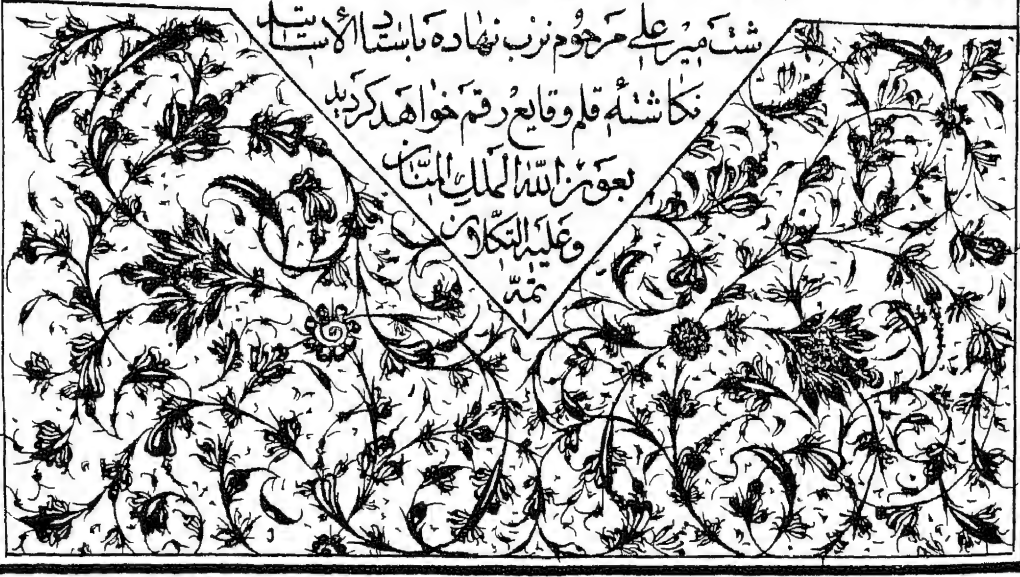 شت میر علی مرحوم نرب نهاده باسناد الاسناد
نکاشتهٔ قلم وقایع رقم خواهد کردید
بعون الله الملک المنان
وعلیه التکلان
تمة